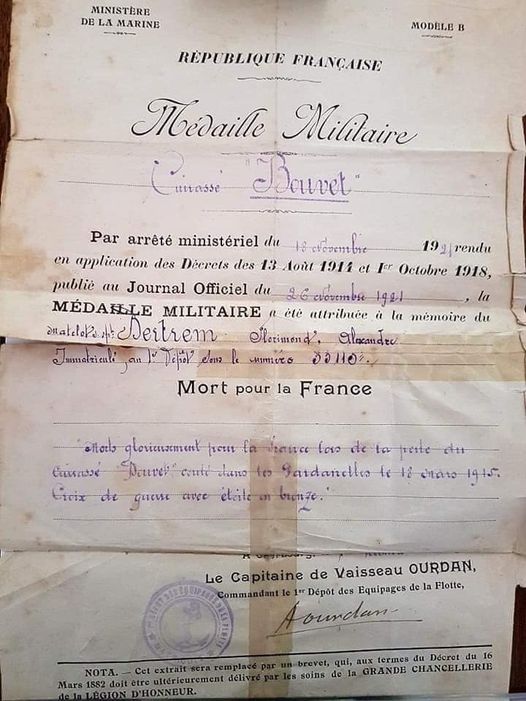 MINISTÈRE
DE LA MARINE
MODÈLE B
RÉPUBLIQUE FRANÇAISE
Médaille Militaire
Cuirassé "Bouvet"
Par arrêté ministériel du 18 Novembre 1921 rendu
en application des Décrets des 13 Août 1914 et 1er Octobre 1918,
publié au Journal Officiel du 26 Novembre 1921, la
MÉDAILLE MILITAIRE a été attribuée à la mémoire du
matelot Florimond, Alexandre
Immatriculé au 1er Dépôt sous le numéro
Mort pour la France
"Morts glorieusement pour la France lors de la perte du
cuirassé "Bouvet" coulé dans les Dardanelles le 18 mars 1915.
Croix de guerre avec étoile en bronze."
Le Capitaine de Vaisseau OURDAN,
Commandant le 1er Dépôt des Equipages de la Flotte,
Aourdan
NOTA. — Cet extrait sera remplacé par un brevet, qui, aux termes du Décret du 16
Mars 1882 doit être ultérieurement délivré par les soins de la GRANDE CHANCELLERIE
de la LÉGION D'HONNEUR.